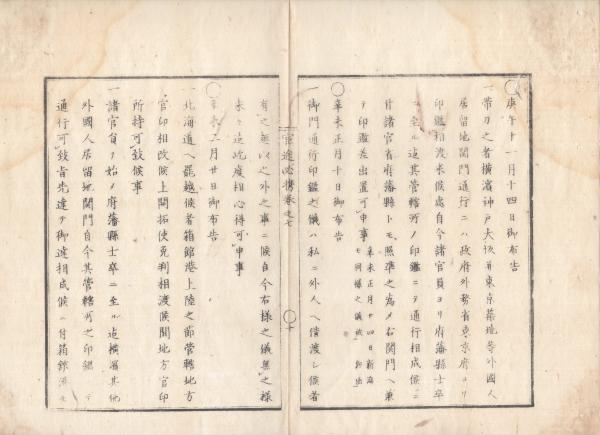 〇庚午十一月十四日御布告
一帯刀之者横濱神戸大坂并東京築地等外國人
居留地関門通行ニハ政府外務省東京府ヨリ
印鑑相渡来候處自今諸官員ヨリ府藩縣士卒
ニ至ル迠其管轄所ノ印鑑ニテ通行相成候ニ
付諸官省府藩縣トモ照準之為メ右関門ヘ兼
テ印鑑差出置可申事 辛未正月廿四日新潟モ同様之儀被 仰出
〇辛未正月十日御布告
一御門通行印鑑之儀ハ私ニ外人ヘ借渡シ候者
有之無以之外之事ニ候自今右様之儀無之様
末々迠此度相心得可申事
〇辛未二月廿日御布告
一北海道ヘ罷越候者箱館港上陸之節管轄地方
官印相改候上開拓使免判相渡候間地方官印
所持可致候事
一諸官員ヲ始メ府藩縣士卒ニ至ル迠横濱其他
外國人居留地関門自今其管轄所之印鑑ニテ
通行可致旨先達テ御達相成候ニ付箱館港モ
官途必携巻之七
〇十